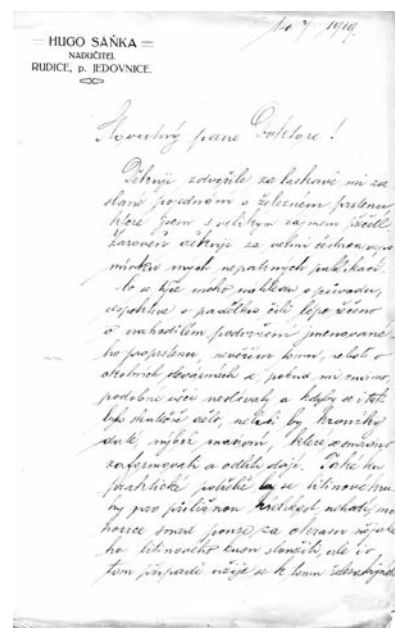 HUGO SÁŇKA
NADUČITEL
RUDICE, p. JEDOVNICE.
1919.
Slovutný pane Doktore!
Děkuji zdvořile za laskavé mi za-
slání pojednání o železném prstenu
které jsem s velikým zájmem přečetl
Zároveň děkuji za velmi čestnou vzpo-
mínku mých nepatrných publikací.
Co se týče mého náhledu o původu,
respektive o padělku čili lépe řečeno
o nahodilém podvržení jmenované-
ho prstenu, nevěřím tomu, neboť v
okolních slévárnách se, pokud mi známo,
podobné věci nedělaly a kdyby se i tak
bylo skutečně dělo, nebyli by kroužky
duté, nýbrž masivní, které
zaformovati a odlíti dají. Také ku
praktické potřebě by se litinové kru-
hy pro přílišnou křehkost nehodí,
pouze za okrasu něja-
ho litinového kusu sloužiti, ale i v
tom případě užije se k tomu